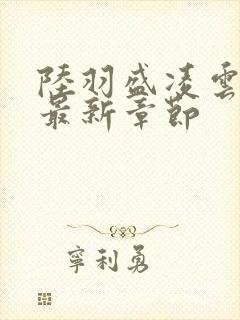 陸羽盛凌雲
最新章節
寧利勇